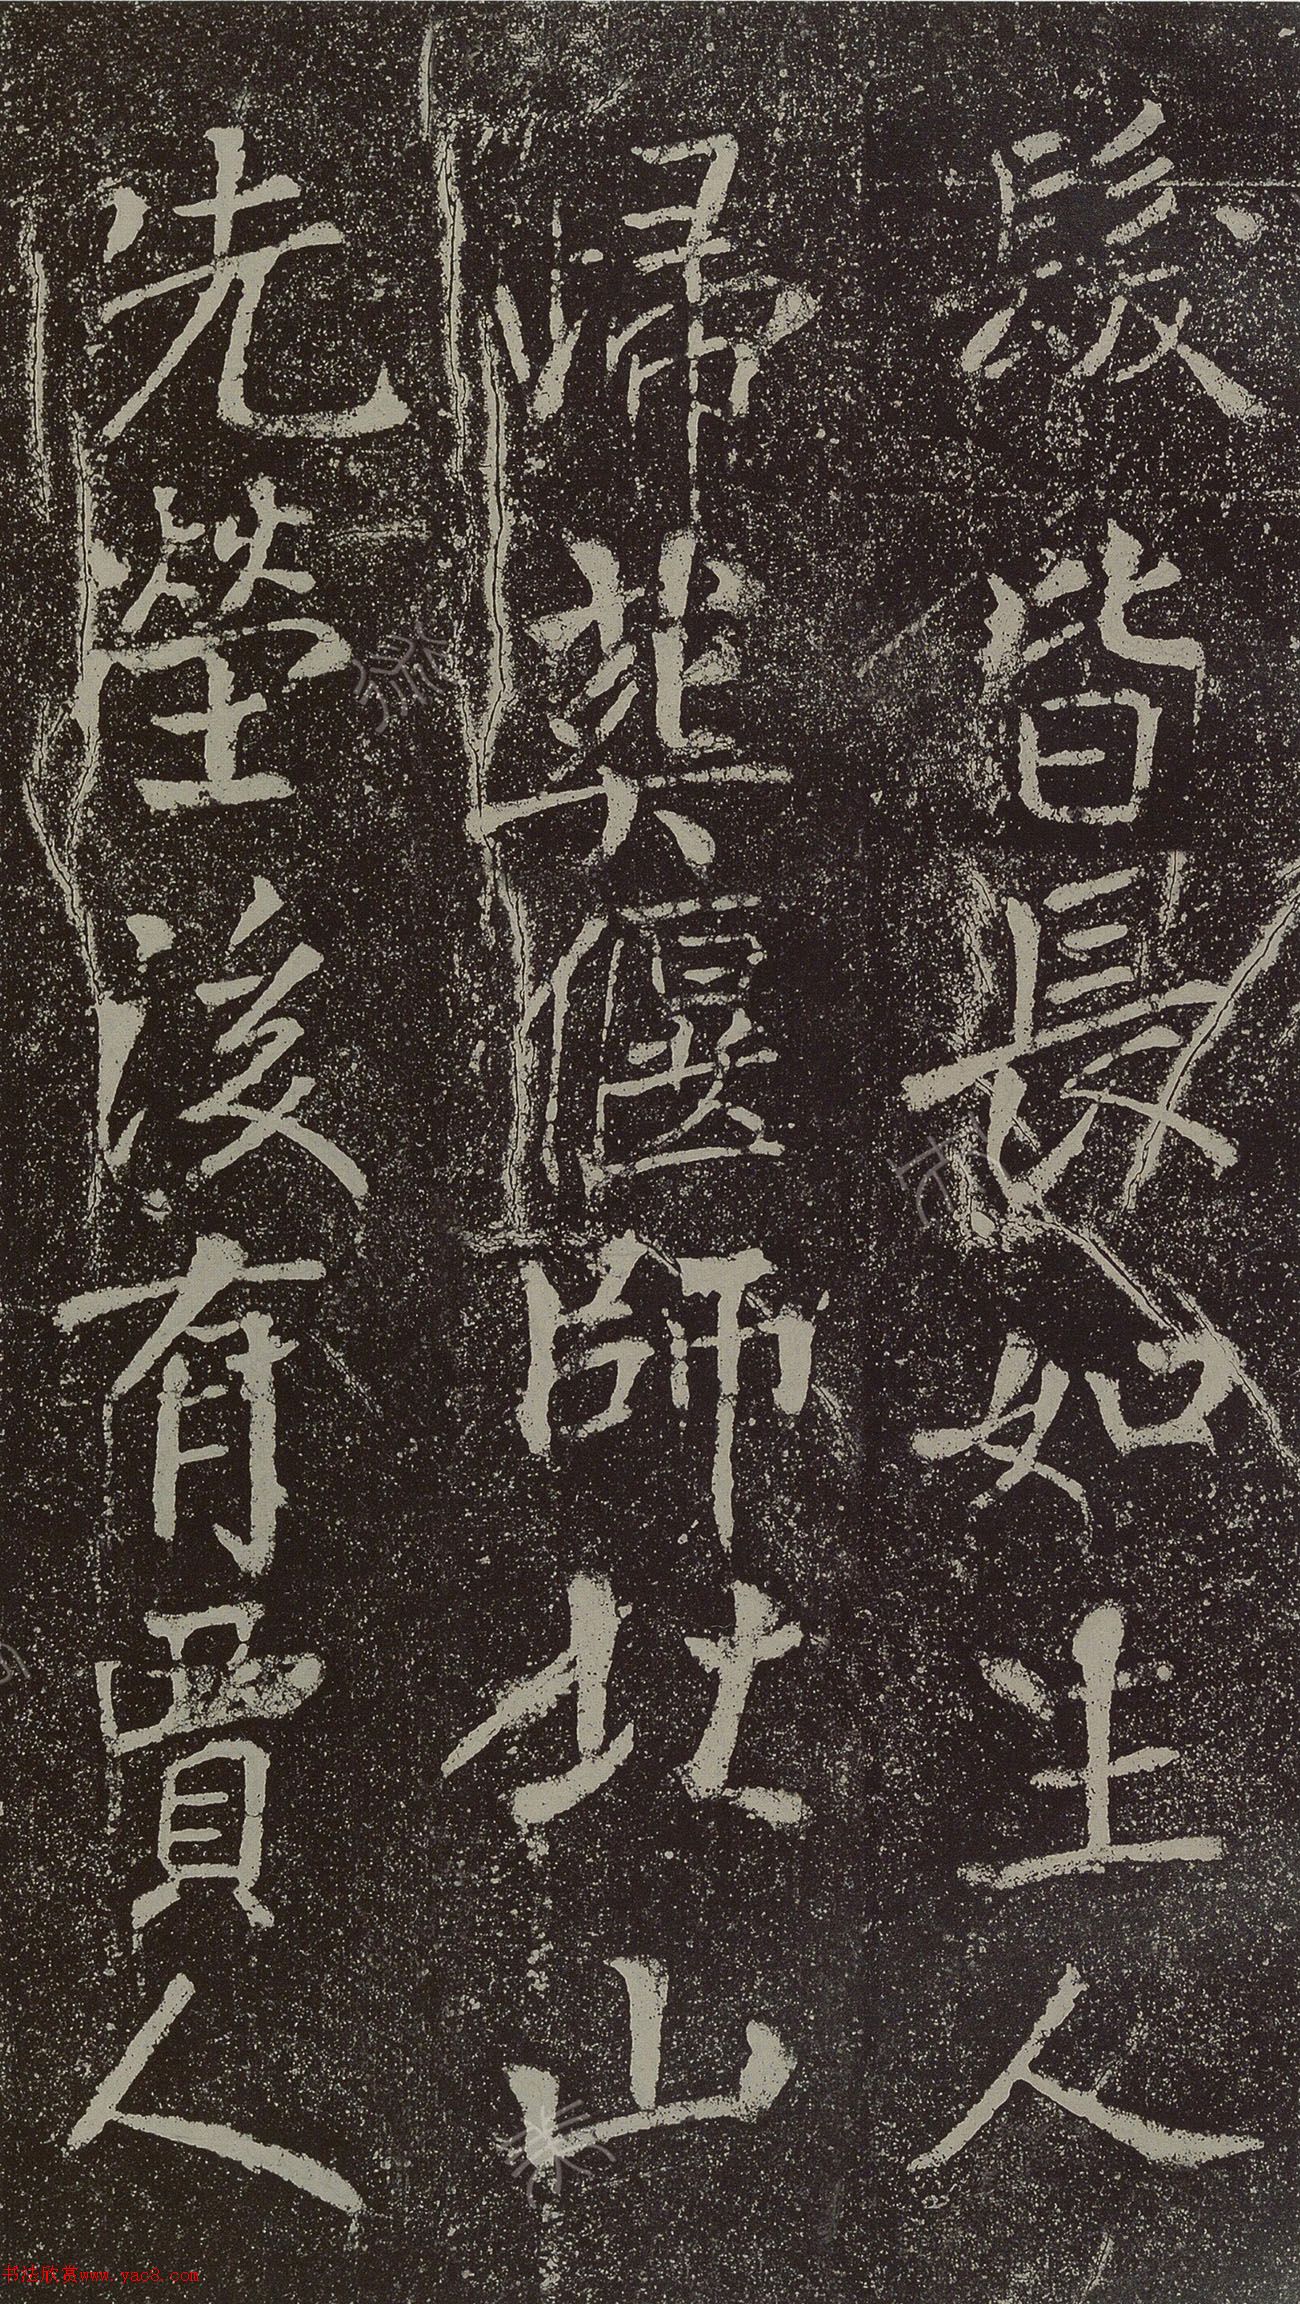 髮皆長如生人
歸葬偃師北山
先塋後有賈人
书法欣赏www.yac8.com